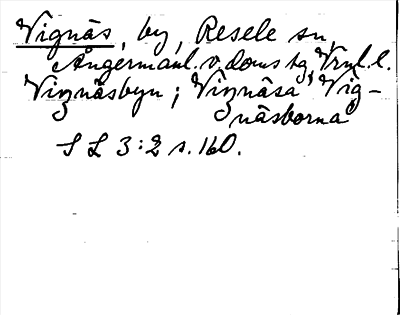 Vignäs, by, Resele sn,
Ångermanl. v. doms tg, Vrnl. l.
Vignäsbyn; Vignäsa Vig-
näsborna
S L 3:2 s. 160.